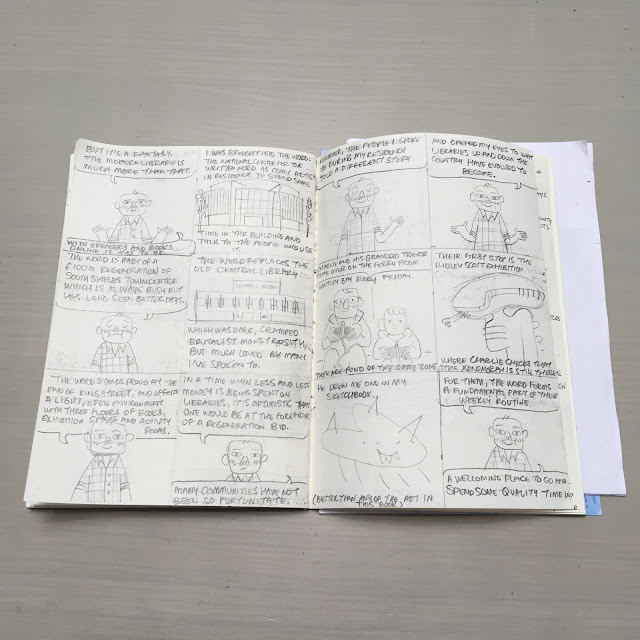 BUT IT'S A FANTASY.
THE MODERN LIBRARY IS
MUCH MORE THAN THAT.
WITH EREADERS AND BOOKS
ONLINE IT HAS TO BE.
I WAS BROUGHT INTO THE WORD:
THE NATIONAL CENTER FOR THE
WRITTEN WORD AS COMIC ARTIST
IN RESIDENCE TO SPEND SOME
TIME IN THE BUILDING AND
TALK TO THE PEOPLE WHO USE
IT.
THE WORD IS PART OF A
£100M REGENERATION OF
SOUTH SHIELDS TOWN CENTRE
WHICH IS ALWAYS BUSY BUT
HAS LONG SEEN BETTER DAYS.
THE WORD REPLACES THE
OLD CENTRAL LIBRARY
WHICH WAS DARK, CRAMPED
BRUTALIST MONSTROSITY,
BUT MUCH LOVED BY MANY
I'VE SPOKEN TO.
THE WORD STANDS PROUD AT THE
END OF KING STREET, AND OFFERS
A LIGHT, OPEN ENVIRONMENT
WITH THREE FLOORS OF BOOKS,
EXHIBITION SPACE AND ACTIVITY
ROOMS.
IN A TIME WHEN LESS AND LESS
MONEY IS BEING SPENT ON
LIBRARIES, IT IS OPTIMISTIC THAT
ONE WOULD BE AT THE FOREFRONT
OF A REGENERATION BID.
MANY COMMUNITIES HAVE NOT
BEEN SO FORTUNATE....
HOWEVER, THE PEOPLE I SPOKE
TO DURING MY RESIDENCY
TOLD A DIFFERENT STORY
AND OPENED MY EYES TO WHAT
LIBRARIES UP AND DOWN THE
COUNTRY HAVE EVOLVED TO
BECOME.
CHARLIE AND HIS GRANDAD TREVOR
COME OVER ON THE FERRY FROM
WHITLEY BAY EVERY FRIDAY.
THEY ARE FOND OF THE GAME ZONE
THEIR FIRST STOP IS THE
RIDLEY SCOTT EXHIBITION
WHERE CHARLIE CHECKS THAT
THE XENOMORPH IS STILL THERE
HE DREW ME ONE IN MY
SKETCHBOOK.
(BETTER THAN ANY OF THE ART IN
THIS BOOK)
FOR THEM, THE WORD FORMS
A FUNDAMENTAL PART OF THEIR
WEEKLY ROUTINE
A WELCOMING PLACE TO GO AND
SPEND SOME QUALITY TIME IN